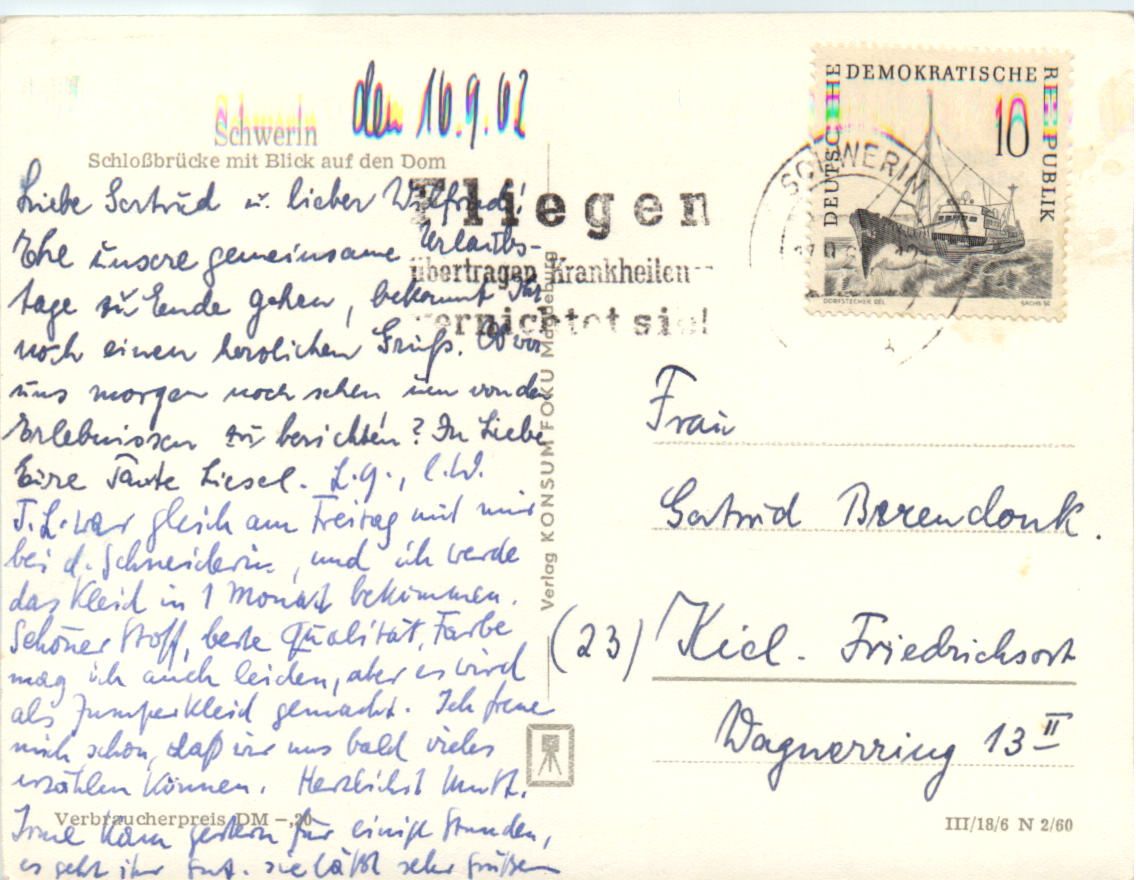 Schwerin den 16.9.62
Schloßbrücke mit Blick auf den Dom
Liebe Gertrud u. lieber Wilfried!
Ehe unsere gemeinsame Urlaubs-
tage zu Ende gehen, bekommt Ihr
noch einen herzlichen Gruß. Ob wir
uns morgen noch sehen um von den
Erlebnissen zu berichten? In Liebe
Eure Tante Liesel. L.G.,
T.L. war gleich am Freitag mit mir
bei d. Schneiderin, und ich werde
das Kleid in 1 Monat bekommen.
Schöner Stoff, beste Qualität, Farbe
mag ich auch leiden, aber es wird
als Jumperkleid gemacht. Ich freue
mich schon, daß wir uns bald vieles
erzählen können. Herzlichst Mutti.
Verbraucherpreis DM –,20
Irme kam gestern für einige Stunden,
es geht ihr gut. sie läßt sehr grüßen
Fliegen
übertragen Krankheiten
vernichtet sie!
Verlag KONSUM FOKU Magdeburg
DEUTSCHE DEMOKRATISCHE REPUBLIK
10
DORFSTECHER DEL.
SACHS SC
SCHWERIN
Frau
Gertrud Berendonk.
(23) Kiel-Friedrichsort
Wagnerring 13 II
III/18/6 N 2/60